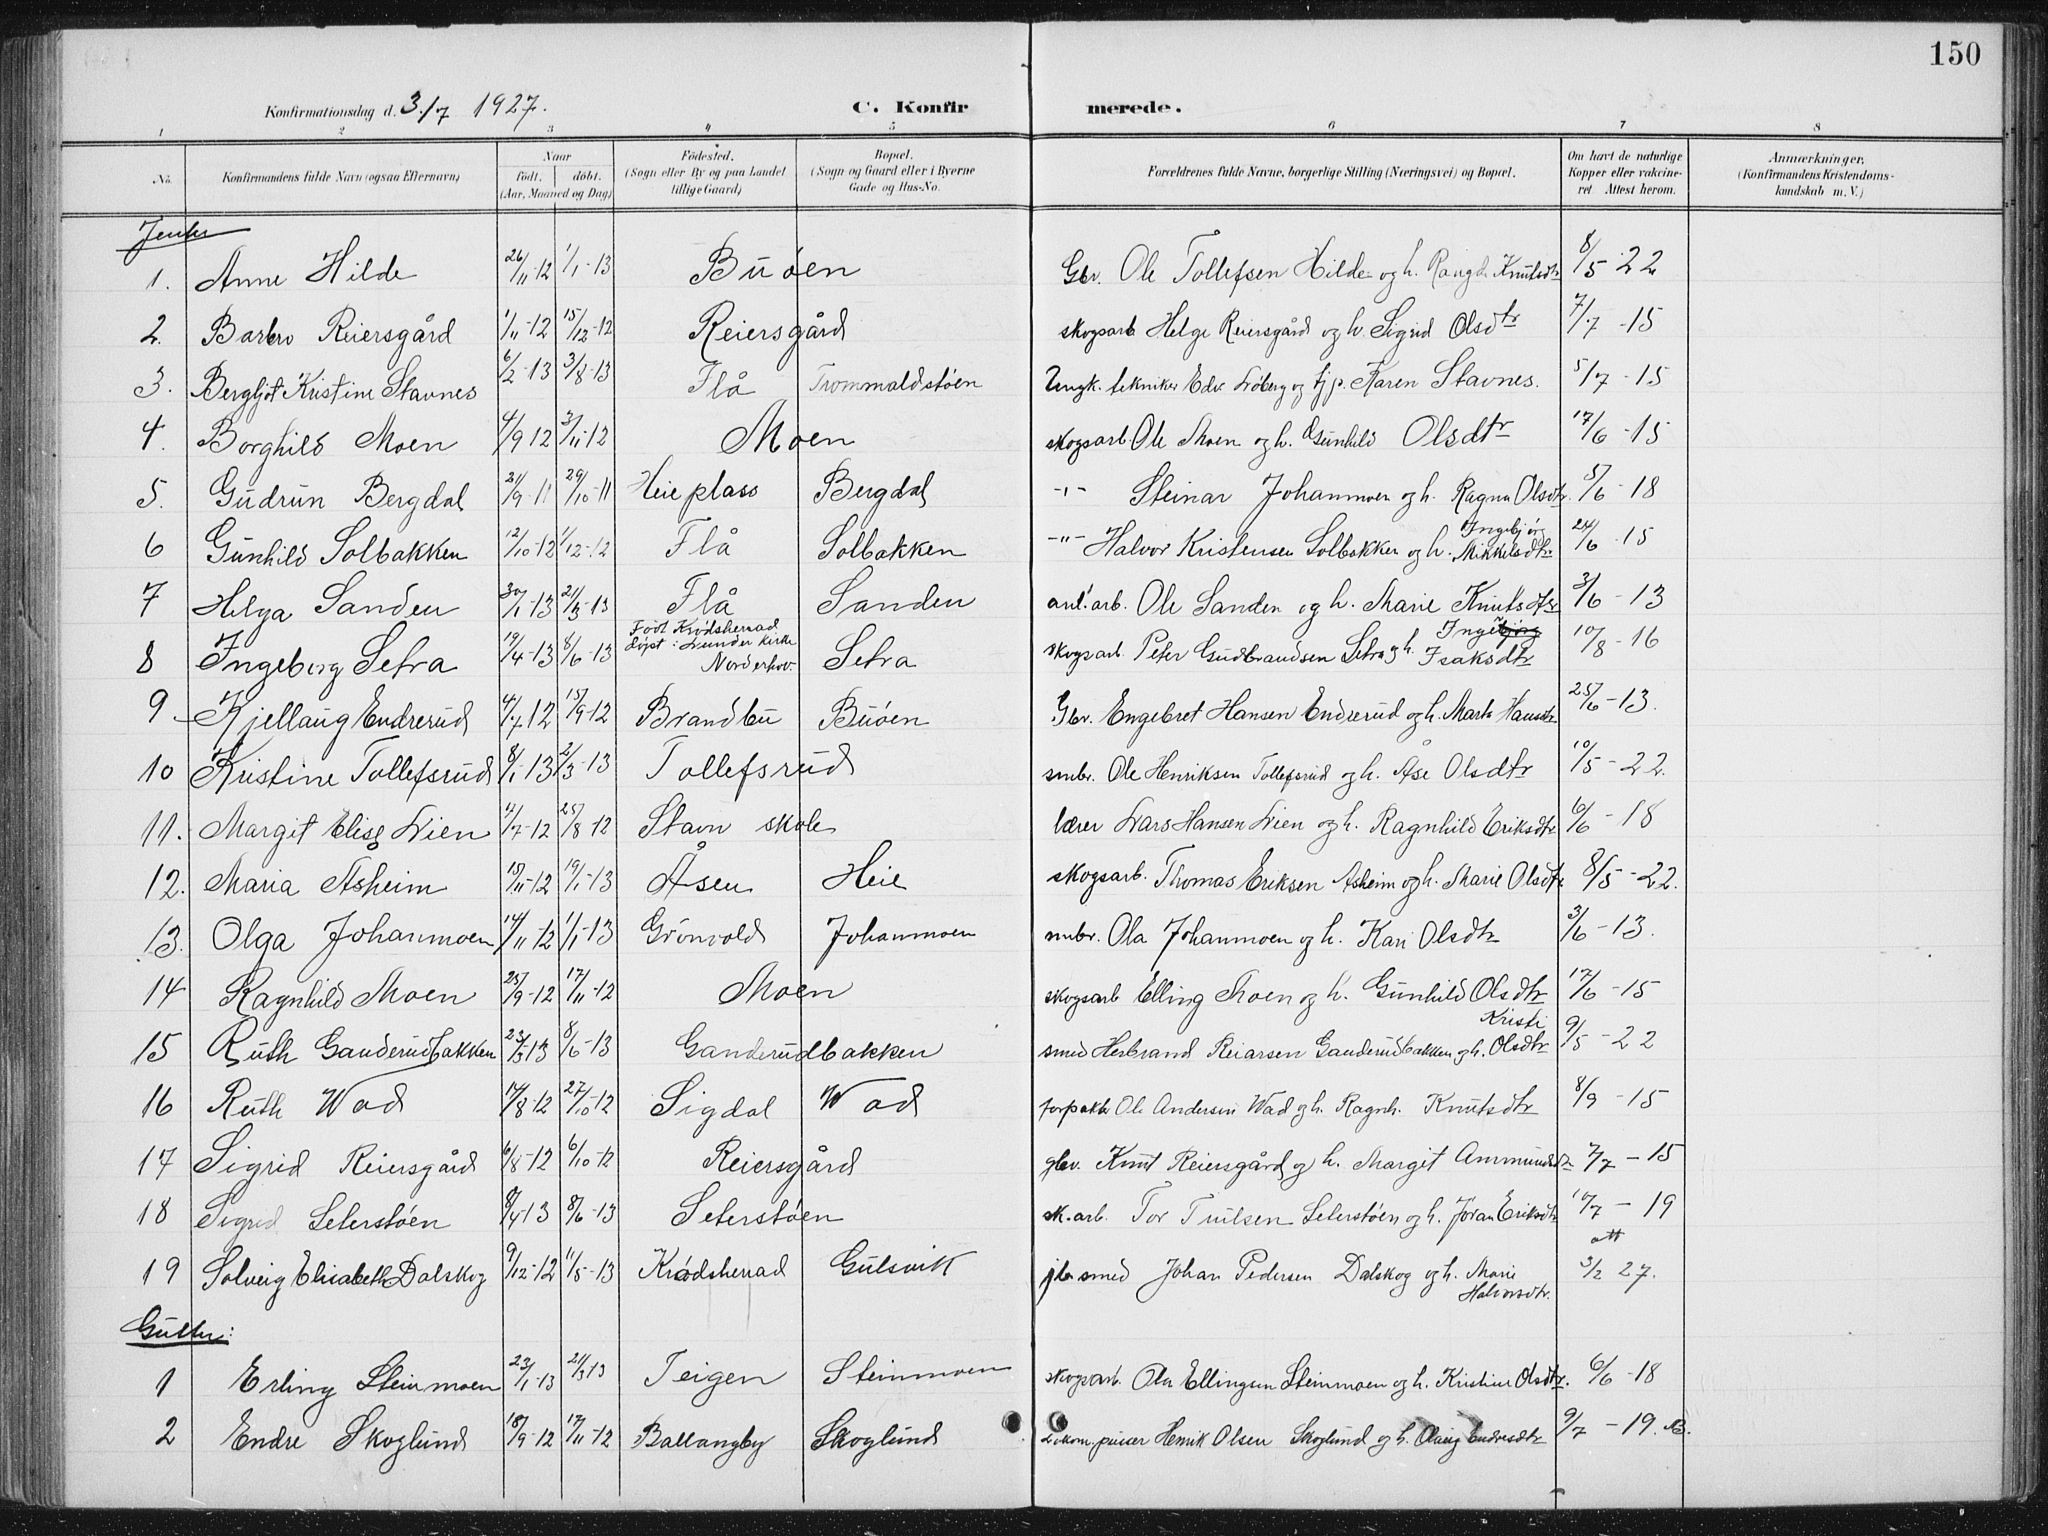 150
Konfirmationsdag d. 3/7 1927. C. Konfirmerede.
1 2 3 4 5 6 7 8
No. Konfirmandens fulde Navn (ogsaa Efternavn) Naar født. døbt. (Aar, Maaned og Dag) Fødested. (Sogn eller By og paa Landet tillige Gaard) Bopæl. (Sogn og Gaard eller i Byerne Gade og Hus-No. Forældrenes fulde Navne, borgerlige Stilling (Næringsvei) og Bopæl. Om havt de naturlige Kopper eller vakcineret Attest herom. Anmærkninger. (Konfirmandens Kristendomskundskab m. V.)
Jenter
1. Anne Hilde 26/11-12 1/1-13 Buøen Gbr. Ole Tollefsen Hilde og h. Rangdi Knutsdtr 8/5 22
2. Barbro Reiersgård 1/11-12 15/12-12 Reiersgård skogsarb Helge Reiersgård og h. Sigrid Olsdtr 7/7-15
3. Bergljot Kristine Stavnes 6/2-13 3/8-13 Flå Trommaldstøen Ungk. tekniker Edv. Løberg og pj. Karen Stavnes. 5/7-15
4. Borghild Moen 4/9 12 3/11-12 Moen skogsarb. Ole Moen og h. Gunhild Olsdtr 17/6-15
5. Gudrun Bergdal 21/9-11 29/10-11 Heieplass Bergdal -"- Steinar Johanmoen og h. Ragna Olsdtr. 5/6-18
6 Gunhild Solbakken 12/10-12 1/12-12 Flå Solbakken -"- Halvor Kristensen Solbakken og h. Ingebjør Mikkelsdtr. 24/6-15
7 Helga Sanden 30/1-13 21/3-13 Flå Sanden anl. arb. Ole Sanden og h. Marie Knutsdtr 3/6-13
8 Ingeberg Setra 19/4-13 8/6-13 Født Krødsherad Døpt i Lunder kirke Norderhov. Setra skogsarb. Peter Gudbrandsen Setra og h. Ingebjørg Isaksdtr 10/8-16
9 Kjellaug Endrerud 4/7 12 15/9-12 Brandbu Buøen Gbr. Engebret Hansen Endrerud og h. Marta Hansdtr 25/6-13.
10 Kristine Tollefsrud 8/1-13 2/3-13 Tollefsrud smbr. Ole Henriksen Tollefsrud og h. Åse Olsdtr 10/5-22.
11. Margit Elise Lien 2/7-12 25/8-12 Stavn skole lærer Lars Hansen Lien og h. Ragnhild Eriksdtr 6/6-18
12. Maria Åsheim 15/11-12 19/1-13 Åsen Heie skogsarb. Thomas Eriksen Åsheim og h. Marie Olsdtr 8/5-22.
13. Olga Johanmoen 14/11-12 1/1-13 Grønvold Johanmoen smbr. Ola Johanmoen og h. Kari Olsdtr 3/6-13.
14 Ragnhild Moen 25/9-12 17/11-12 Moen skogsarb Elling Moen og h. Gunhild Olsdtr 17/6-15
15 Ruth Ganderudbakken 23/3 13 8/6-13 Ganderudbakken smed Herbrand Reiarsen Ganderudbakken og h. Kristi Olsdtr 9/5-22
16 Ruth Wad 14/8-12 27/10-12 Sigdal Wad forpakter Ole Andersen Wad og h. Ragnh. Knutsdtr 8/9-15
17 Sigrid Reiersgård 6/8-12 6/10-12 Reiersgård gbr. Knut Reiersgård og h. Margit Ammundsdtr 7/7-15
18 Sigrid Seterstøen 8/4-13 8/6-13 Seterstøen sk.arb. Tor Truilsen Seterstøen og h. Jøran Eriksdtr 10/7-19
19 Solveig Elisabeth Dalskog 9/12-12 11/5-13 Krødsherad Gulsvik jb. smed Johan Pedersen Dalskog og h. Marie Halvorsdtr. att 3/2 27.
Gutter:
1 Erling Steinmoen 23/1-13 21/3 13 Teigen Steinmoen skogsarb. Ola Ellingsen Steinmoen og h. Kristine Olsdtr. 6/6-18
2 Endre Skoglund 18/9-12 17/11-12 Ballangby Skoglund Lokom. pusser Henrik Olsen Skoglund og h. Olaug Endresdtr 9/7-19.